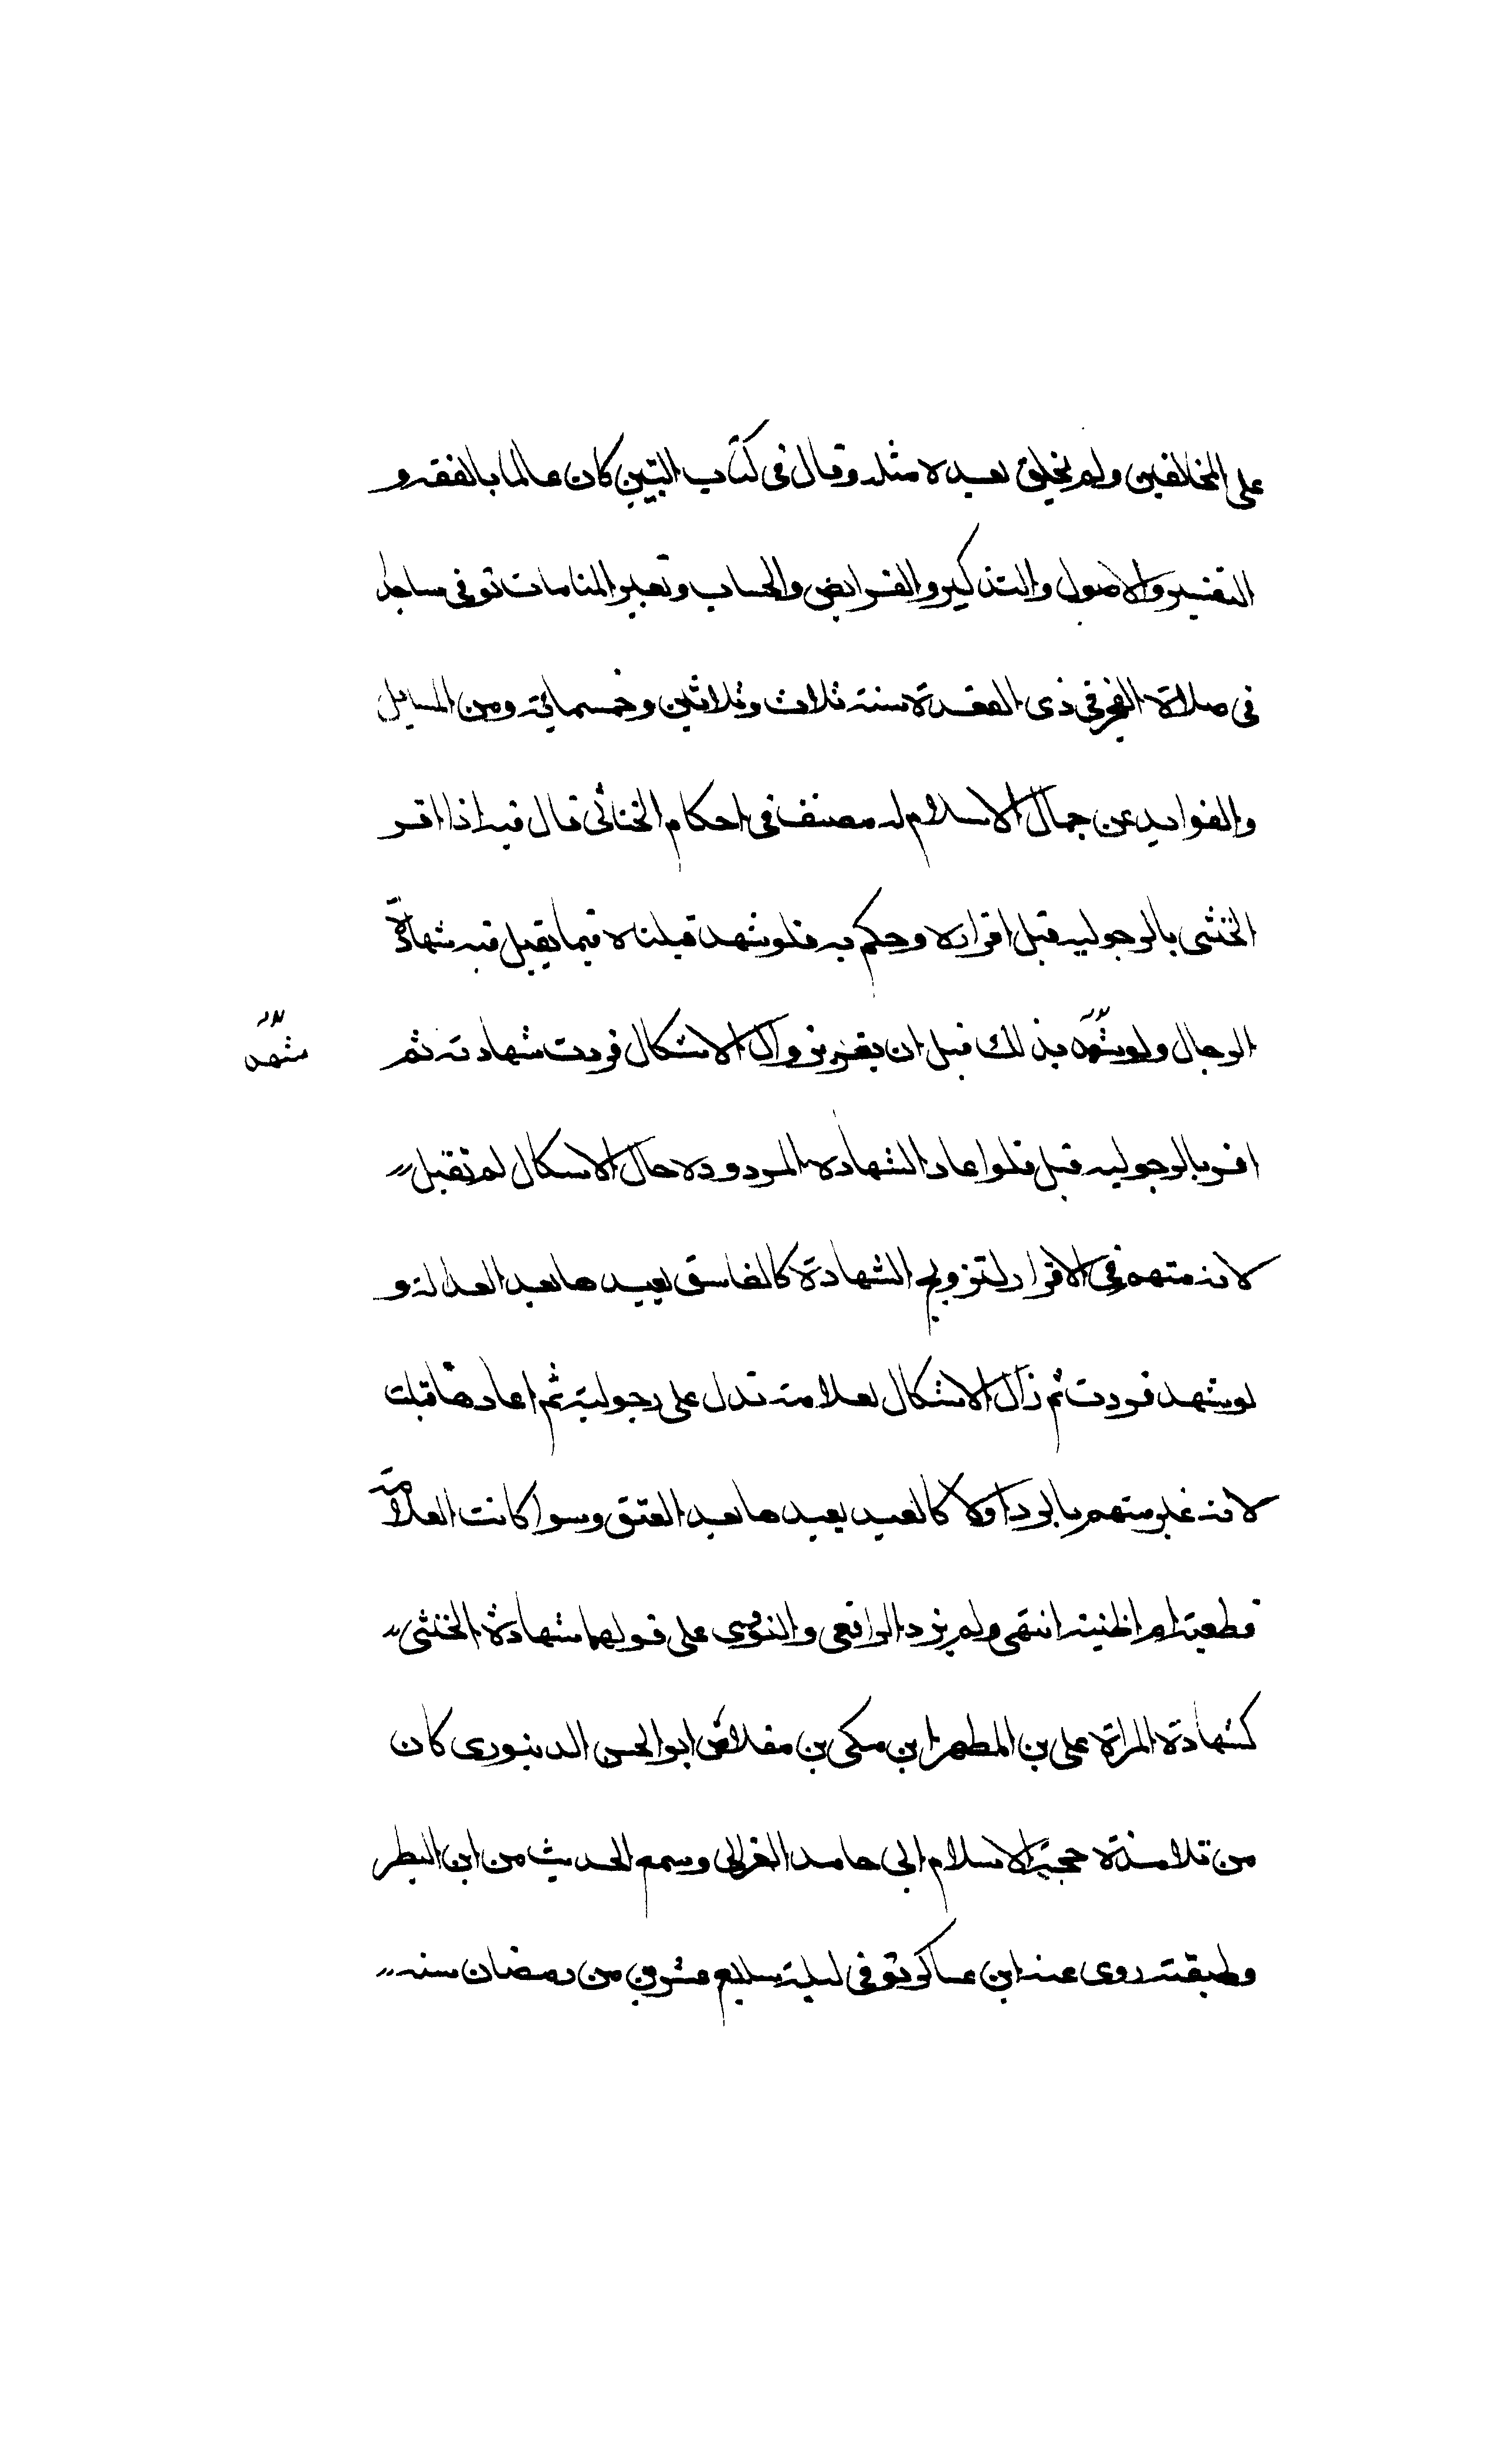 على المخالفين ولم يخلق بعده مثله وقال فى كتاب التبيين كان عالما بالفقه و
التفسير والاصول والتذكير والفرايض والحساب وتعبير المنامات توفى ساجدا
فى صلاة الفجر فى ذى القعدة سنة ثلاث وثلاثين وخمسمائة ومن المسايل
والفوايد عن جمال الاسلام له مصنف فى احكام الخناثى قال فيه اذا اقر
الخنثى بالرجولية قبل اقراره وحكم به فلو شهد قبلناه فيما يقبل فيه شهادة
الرجال ولو شهد بذلك قبل ان يقر بزوال الاشكال فردت شهادته ثم
شهد
اقر بالرجولية قبل فلو اعاد الشهاده المردوده حال الاسكال لم تقبل
لانه متهم فى الاقرار لتزويج الشهادة كالفاسق يعيدها بعد العدالة و
لو شهد فردت ثم زال الاشكال لعلامة تدل على رجولية ثم اعادها قبلت
لانه غير متهم بالرد اولا كالعبد يعيدها بعد العتق وسوا كانت العلامة
قطعية ام اظنية انتهى ولم يزد الرافعى والنووى على قولهما شهادة الخنثى
كشهادة المراة على بن المطهر ابن مكى بن مقلاص ابو الحسن الدينورى كان
من تلامذة حجة الاسلام ابى حامد الغزالى وسمع الحديث من ابن البطر
وطبقته روى عنه ابن عساكر توفى ليلة سابع عشرين من رمضان سنه